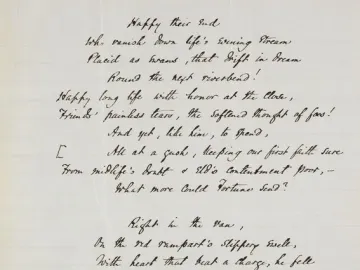 Happy their end
Who vanish down life's evening stream
Placid as swans, that drift in dream
Round the next riverbend!
Happy long life with honor at the close,
Friends' painless tears, the softened thought of foes!
And yet, like him, to spend,
[ All at a gush, keeping our first faith sure
From midlife's doubt & eld's contentment poor, –
What more could Fortune send?
Right in the van,
On the red rampart's slippery swell,
With heart that beat a charge, he fell